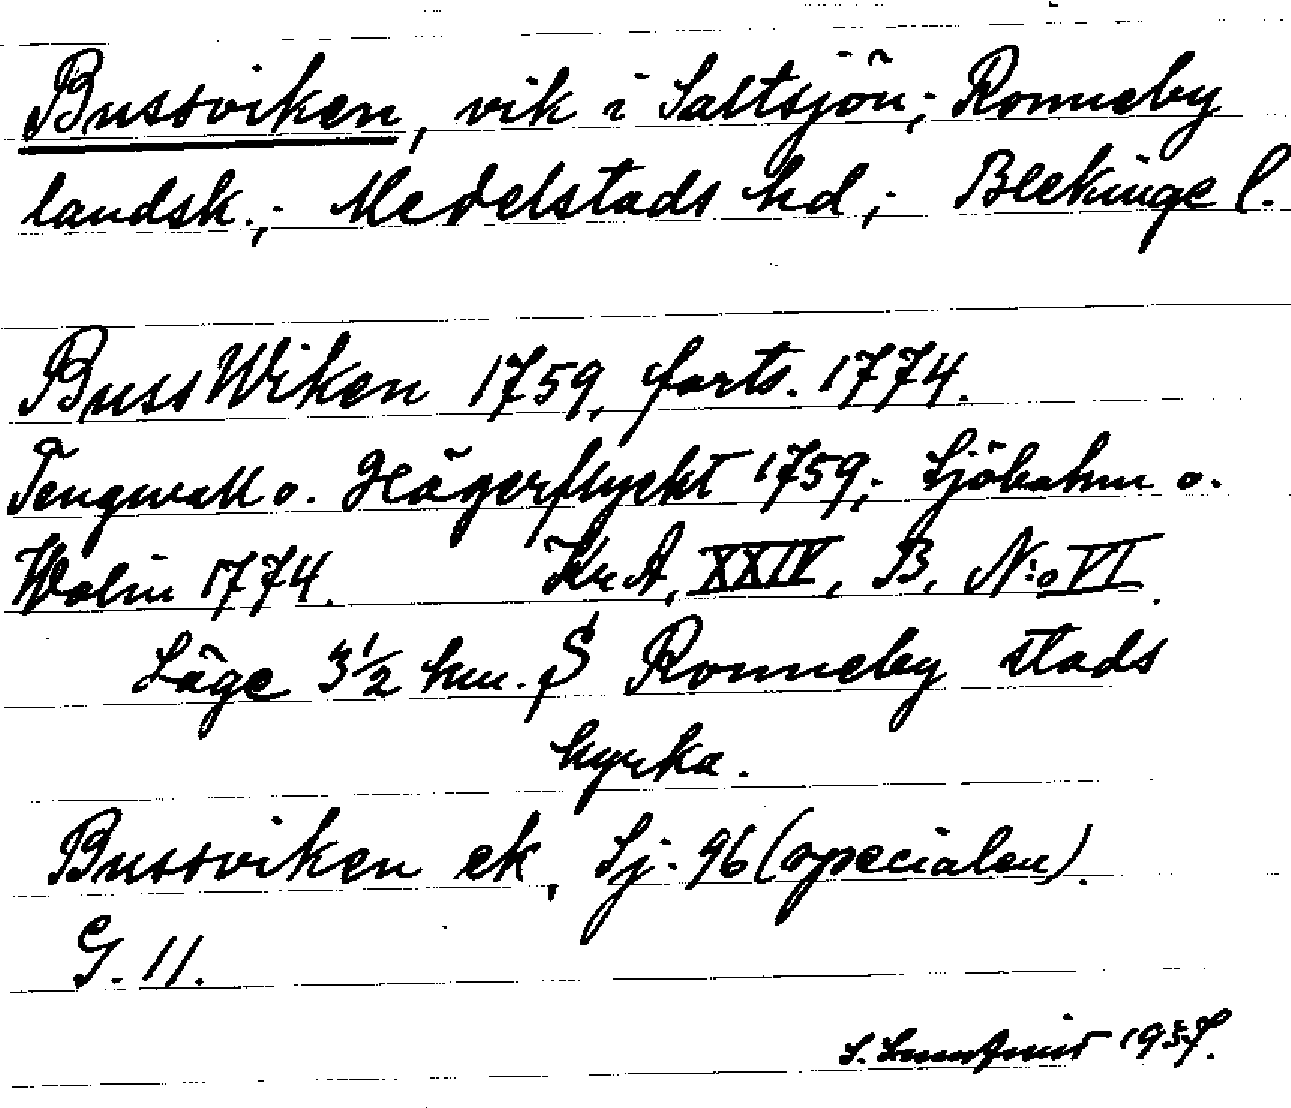 Bussviken, vik i Saltsjön; Ronneby
landsk.; Medelstads hd; Blekinge l.
BussWiken 1759, forts. 1774.
Tengwall o. Hägerflycht 1759; Sjöbohm o.
Wolin 1774. Kr. A, XXIV, B, N:o VI.
Läge 3 1/2 km. S Ronneby stads
kyrka.
Bussviken ek, Sj. 96 (specialen).
G. 11.
S. 1937.